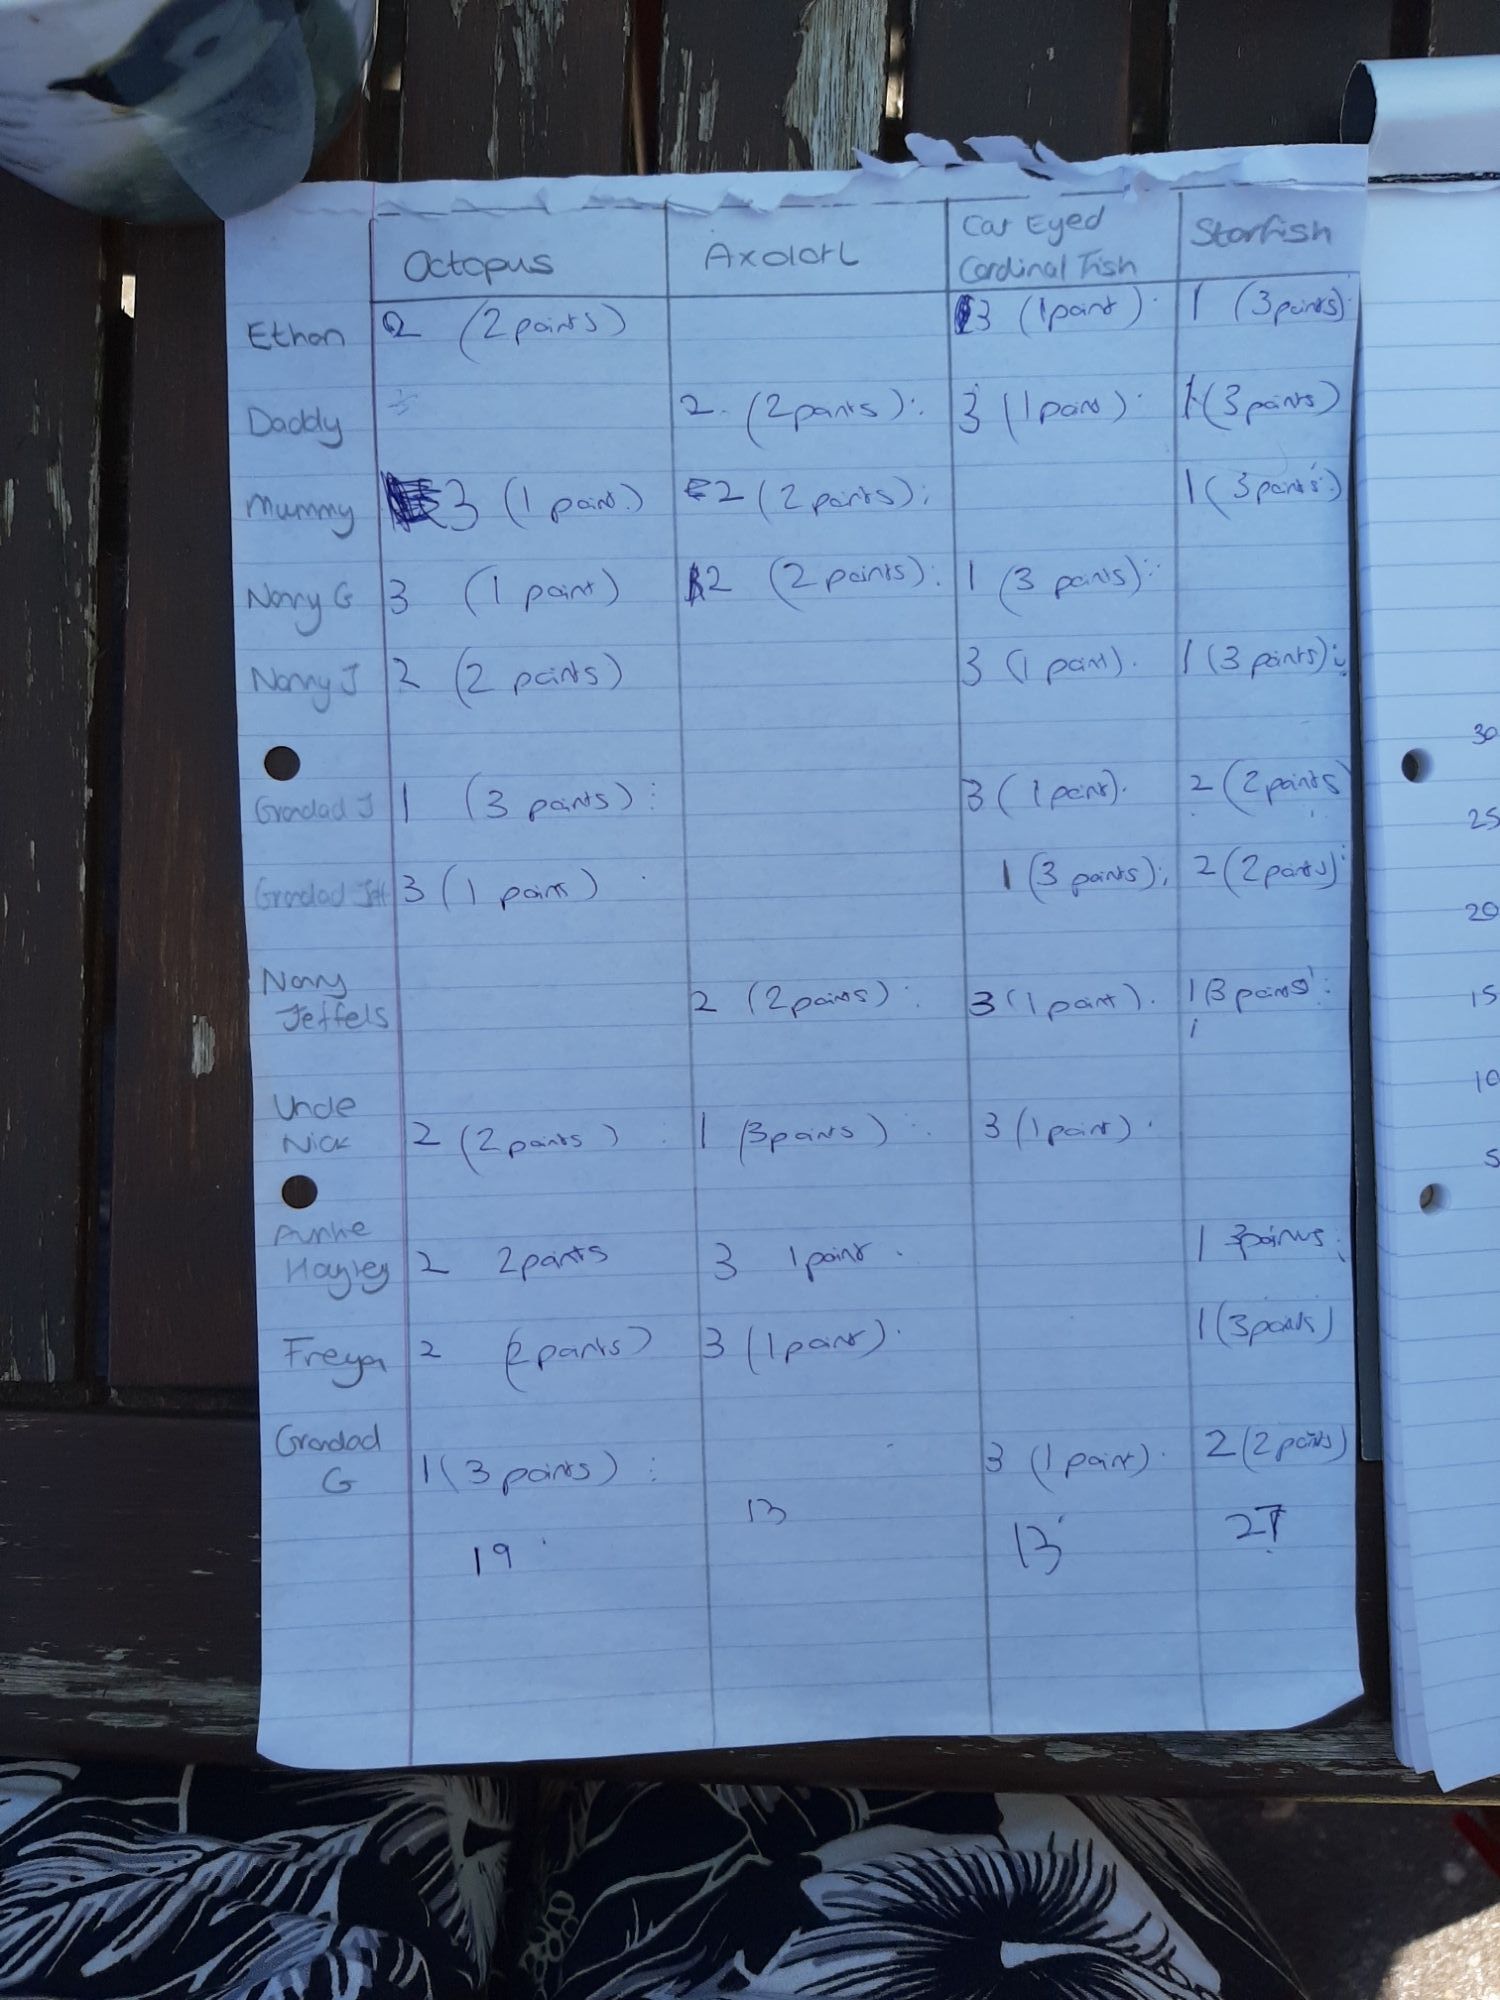 Octopus Axolotl Cat Eyed Cardinal Fish Starfish
Ethan 2 (2 points) 3 (1 point) 1 (3 points)
Daddy 2 (2 points) 3 (1 point) 1 (3 points)
Mummy 3 (1 point) 2 (2 points) 1 (3 points)
Nanny G 3 (1 point) 2 (2 points) 1 (3 points)
Nanny J 2 (2 points) 3 (1 point) 1 (3 points)
Grandad J 1 (3 points) 3 (1 point) 2 (2 points
Grandad 3 (1 point) 1 (3 points) 2 (2 points)
Nanny
Jeffels 2 (2 points) 3 (1 point) 1 (3 points)
Uncle
Nick 2 (2 points) 1 (3 points) 3 (1 point)
Auntie
Hayley 2 2 points 3 1 point 1 3 points
Freya 2 (2 points) 3 (1 point) 1 (3 points)
Grandad
G 1 (3 points) 3 (1 point) 2 (2 points)
19 13 13 27
30
25
20
15
10
5